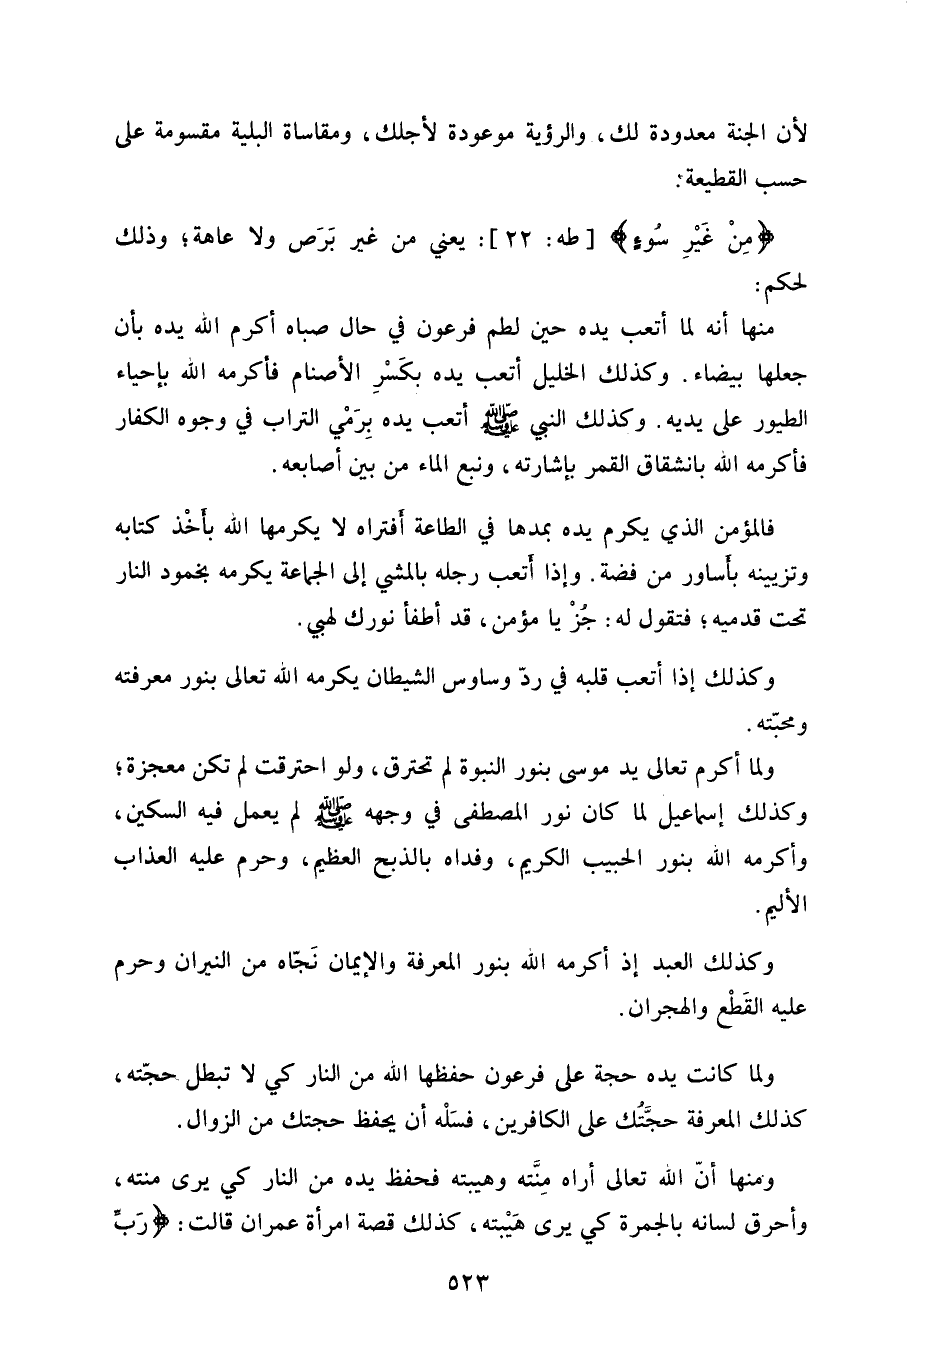 لأن الجنة معدودة لك، والرؤية موعودة لأجلك، ومقاساة البلية مقسومة على
حسب القطيعة:
﴿مِنْ غَيْرِ سُوءٍ﴾ [طه: ٢٢]: يعني من غير بَرَص ولا عاهة؛ وذلك
لحكم:
منها أنه لما أتعب يده حين لطم فرعون في حال صباه أكرم الله يده بأن
جعلها بيضاء. وكذلك الخليل أتعب يده بكَسْرِ الأصنام فأكرمه الله بإحياء
الطيور على يديه. وكذلك النبي ﷺ أتعب يده بِرَمْي التراب في وجوه الكفار
فأكرمه الله بانشقاق القمر بإشارته، ونبع الماء من بين أصابعه.
فالمؤمن الذي يكرم يده بمدها في الطاعة أَفتراه لا يكرمها الله بأَخْذ كتابه
وتزيينه بأَساور من فضة. وإذا أَتعب رجله بالمشي إلى الجماعة يكرمه بخمود النار
تحت قدميه؛ فتقول له: جُزْ يا مؤمن، قد أطفأ نورك لهبي.
وكذلك إذا أتعب قلبه في ردّ وساوس الشيطان يكرمه الله تعالى بنور معرفته
ومحبّته.
ولما أكرم تعالى يد موسى بنور النبوة لم تحترق، ولو احترقت لم تكن معجزة؛
وكذلك إسماعيل لما كان نور المصطفى في وجهه ﷺ لم يعمل فيه السكين،
وأكرمه الله بنور الحبيب الكريم، وفداه بالذبح العظيم، وحرم عليه العذاب
الأليم.
وكذلك العبد إذ أكرمه الله بنور المعرفة والإيمان نَجّاه من النيران وحرم
عليه القَطْع والهجران.
ولما كانت يده حجة على فرعون حفظها الله من النار كي لا تبطل حجّته،
كذلك المعرفة حجَّتُك على الكافرين، فسَلْه أن يحفظ حجتك من الزوال.
ومنها أنّ الله تعالى أراه مِنَّته وهيبته فحفظ يده من النار كي يرى منته،
وأحرق لسانه بالجمرة كي يرى هَيْبته، كذلك قصة امرأة عمران قالت: ﴿رَبِّ
٥٢٣